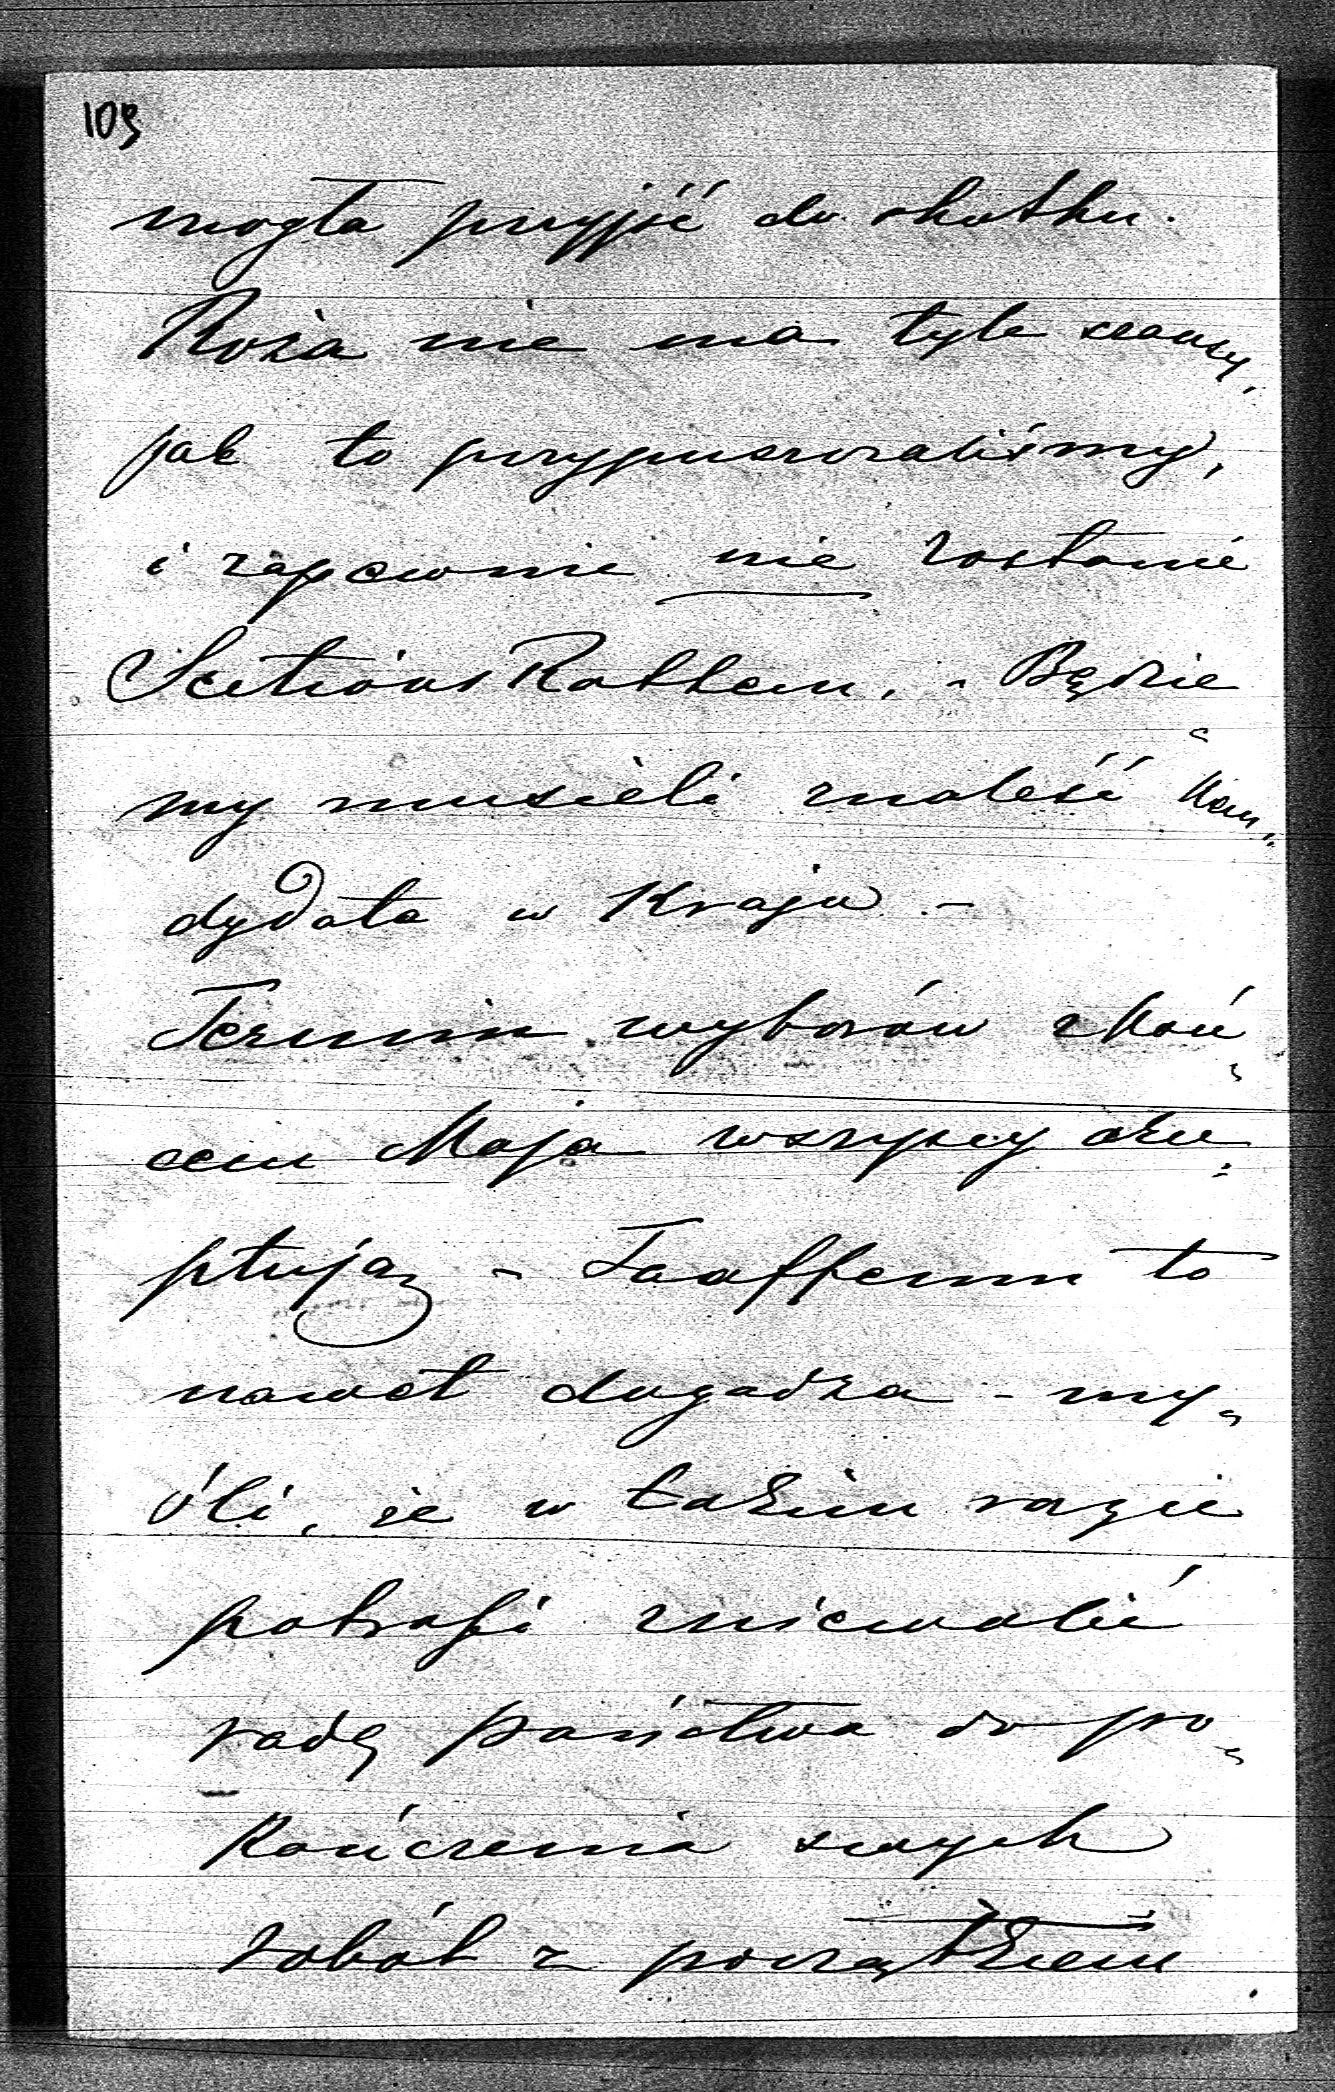 103
mogła przyjść do skutku.
Roża nie ma tyle szansy,
jak to przypuszczaliśmy,
i zapewnie nie zostanie
SectionsRathem. - Będzie
my musieli znaleść kan„
dydata w Kraju -
Termin wyborów z koń„
cem Maja wszyscy akce„
ptują - Taaffemu to
nawet dogadza - my„
śli, że w takim razie
potrafi zniewolić
radę państwa do po„
kończenia swych
robót z początkiem